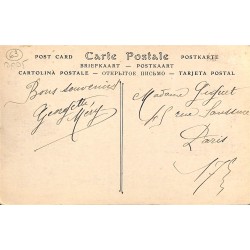 POST CARD
Carte Postale
POSTKARTE
BRIEFKAART — POSTKAART
CARTOLINA POSTALE — ОТКРЫТОЕ ПИСЬМО — TARJETA POSTAL
Bons souvenirs
Georgette
Méry
Madame
45 rue Saussure
Paris
17e